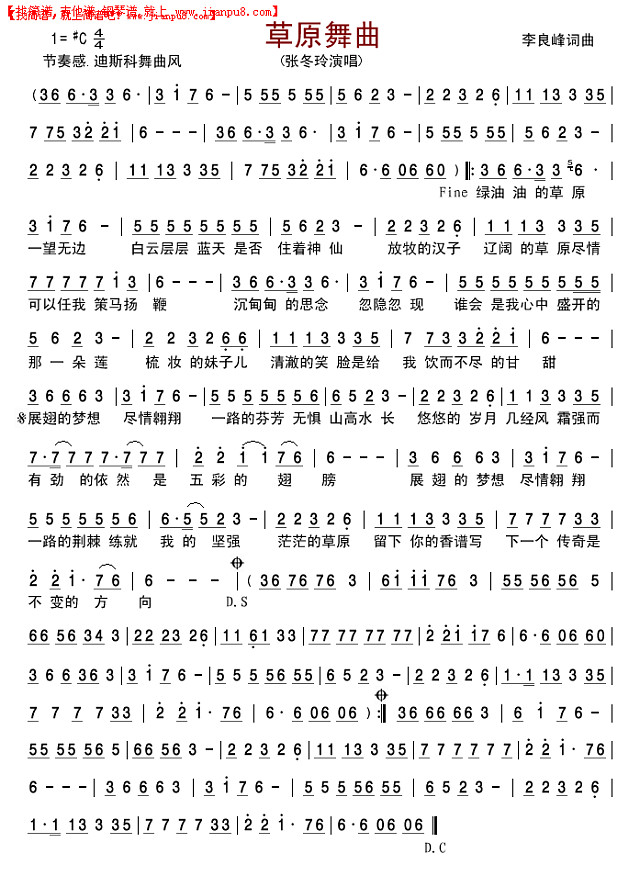 【找简谱,吉他谱,钢琴谱,就上 www.jianpu8.com】
草原舞曲
1=♯C 4/4
李良峰词曲
节奏感.迪斯科舞曲风
(张冬玲演唱)
(36 6·3 3 6·|3 i 7 6 -|5 55 5 55|5 6 5 2 3 -|2 2 3 2 6|11 11 3 3 35|
7 75 32 21|6 - - -|36 6·3 3 6·|3 i 7 6 -|5 55 5 55|5 6 5 2 3 -|
2 2 3 2 6|11 11 3 3 35|7 75 32 21|6·6 06 60)‖:3 6 6·3 3 6·
Fine 绿油 油 的草 原
3 i 7 6 -|5 5 5 5 5 5 5|5 6 2 3 -|2 2 3 2 6|1 1 1 3 3 3 5|
一望无边 白云层层 蓝天 是否 住着神 仙 放牧的汉子 辽阔 的草 原尽情
7 7 7 7 7 i 3|3 - - -|3 6 6·3 3 6·|3 i 7 6 -|5 5 5 5 5 5 5|
可以任我 策马扬 鞭 沉甸甸 的思念 忽隐忽 现 谁会 是我心中 盛开的
5 6 2 3 -|2 2 3 2 6 6|1 1 1 3 3 3 5|7 7 7 3 2 2 1|6 - - -|
那 一 朵 莲 梳 妆 的妹子儿 清澈的笑 脸是给 我 饮而不尽 的甘 甜
3 6 6 6 3|3 i 7 6 -|5 5 5 5 5 5 6|6 5 2 3 -|2 2 3 2 6|1 1 1 3 3 3 5|
※展翅的梦想 尽情翱翔 一路的芬芳 无惧 山高水 长 悠悠的 岁月 几经风 霜强而
7·7 7·7 7·7 7 7|2 2 i i 7 6|6 - - -|3 6 6 6 3|3 i 7 6 -|
有 劲 的依 然 是 五 彩的 翅 膀 展 翅 的梦想 尽情翱 翔
5 5 5 5 5 5 5|6·5 5 2 3 -|2 2 3 2 6|1 1 1 3 3 3 5|7 7 7 7 7 3 3|
一路的荆棘 练就 我 的 坚强 茫茫的草原 留下 你的香谱写 下一个 传奇是
2 2 i·7 6|6 - - -|(36 76 76 3|6i ii i 3|55 55 56 5|
不 变的 方 向 D.S
66 56 34 3|22 23 2 6|11 61 33|77 77 77 77|2 2i i7 6|6·6 06 06|
3 6 6 6 3|3 i 7 6 -|5 5 55 56 55|6 5 2 3 -|2 2 3 2 6|1·1 13 3 35|
7 7 7 7 33|2 2 i·76|6·6 06 06):‖36 66 66 3|6 i 76 -|
55 55 56 5|66 56 3 -|2 2 3 2 6|11 11 3 3 35|7 7 7 7 7 7|2 2 i·76|
6 - - -|3 6 6 6 3|3 i 7 6 -|5 5 55 56 55|6 5 2 3 -|2 2 3 2 6|
1·1 13 3 35|7 7 7 7 33|2 2 i·76|6·6 06 06‖
D.C